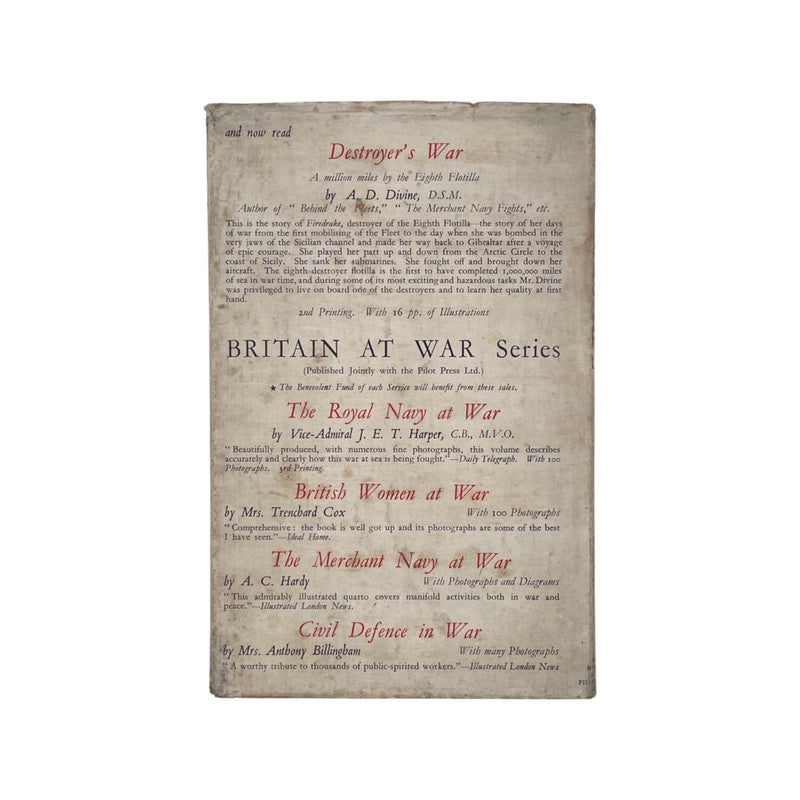 and now read
Destroyer's War
A million miles by the Eighth Flotilla
by A. D. Divine, D.S.M.
Author of "Behind the Fleets," "The Merchant Navy Fights," etc.
This is the story of Firedrake, destroyer of the Eighth Flotilla—the story of her days
of war from the first mobilising of the Fleet to the day when she was bombed in the
very jaws of the Sicilian channel and made her way back to Gibraltar after a voyage
of epic courage. She played her part up and down from the Arctic Circle to the
coast of Sicily. She sank her submarines. She fought off and brought down her
aircraft. The eighth destroyer flotilla is the first to have completed 1,000,000 miles
of sea in war time, and during some of its most exciting and hazardous tasks Mr. Divine
was privileged to live on board one of the destroyers and to learn her quality at first
hand.
2nd Printing. With 16 pp. of Illustrations
BRITAIN AT WAR Series
(Published Jointly with the Pilot Press Ltd.)
★ The Benevolent Fund of each Service will benefit from these sales.
The Royal Navy at War
by Vice-Admiral J. E. T. Harper, C.B., M.V.O.
"Beautifully produced, with numerous fine photographs, this volume describes
accurately and clearly how this war at sea is being fought."—Daily Telegraph. With 100
Photographs. 3rd Printing.
British Women at War
by Mrs. Trenchard Cox With 100 Photographs
"Comprehensive: the book is well got up and its photographs are some of the best
I have seen."—Ideal Home.
The Merchant Navy at War
by A. C. Hardy With Photographs and Diagrams
"This admirably illustrated quarto covers manifold activities both in war and
peace."—Illustrated London News.
Civil Defence in War
by Mrs. Anthony Billingham With many Photographs
"A worthy tribute to thousands of public-spirited workers."—Illustrated London News